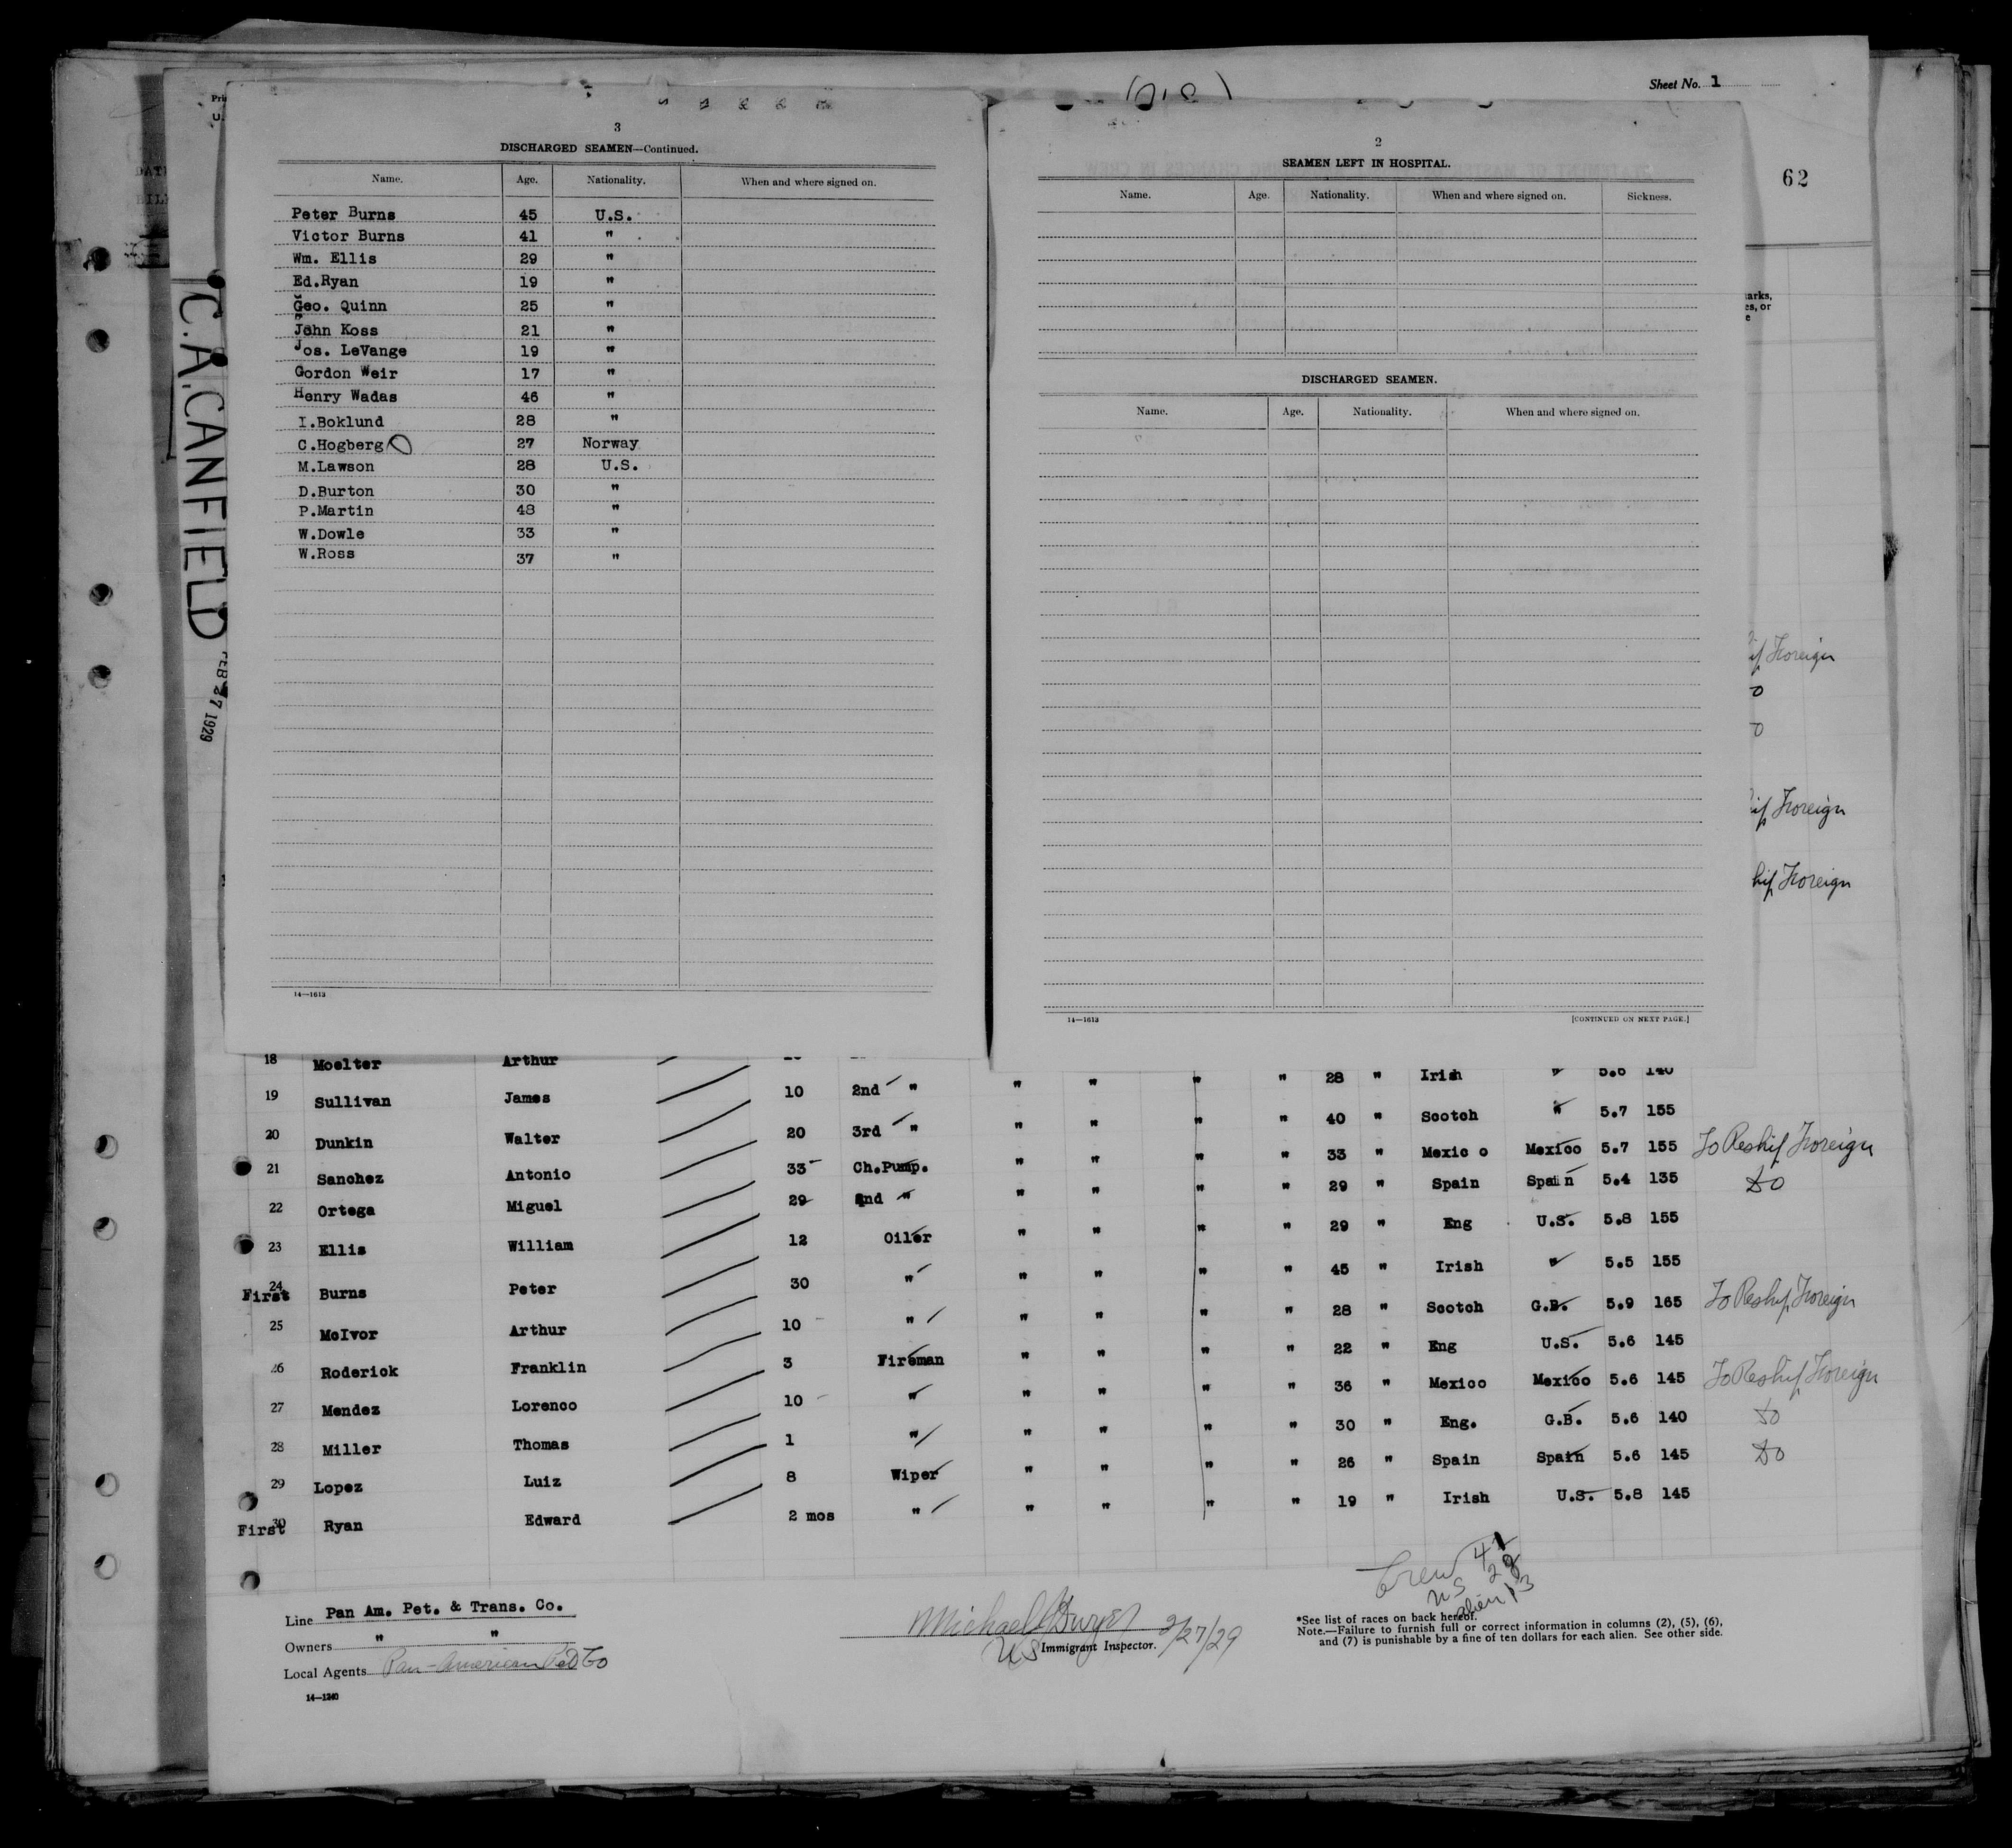 Sheet No. 1
62
C.A.CANFIELD
FEB 27 1929
3
DISCHARGED SEAMEN—Continued.
Name. Age. Nationality. When and where signed on.
Peter Burns 45 U.S.
Victor Burns 41 "
Wm. Ellis 29 "
Ed.Ryan 19 "
Geo. Quinn 25 "
John Koss 21 "
Jos. LeVange 19 "
Gordon Weir 17 "
Henry Wadas 46 "
I.Boklund 28 "
C.Hogberg 27 Norway
M.Lawson 28 U.S.
D.Burton 30 "
P.Martin 48 "
W.Dowle 33 "
W.Ross 37 "
14—1613
2
SEAMEN LEFT IN HOSPITAL.
Name. Age. Nationality. When and where signed on. Sickness.
DISCHARGED SEAMEN.
Name. Age. Nationality. When and where signed on.
14—1613 [CONTINUED ON NEXT PAGE.]
arks,
es, or
e
if Foreign
o
o
if Foreign
hip Foreign
18 Moelter Arthur
19 Sullivan James 10 2nd " " " " " 28 " Irish " 5.6 140
20 Dunkin Walter 20 3rd " " " " " 40 " Scotch " 5.7 155
21 Sanchez Antonio 33 Ch.Pump. " " " " 33 " Mexic o Mexico 5.7 155 To Reship Foreign
22 Ortega Miguel 29 2nd " " " " " 29 " Spain Spain 5.4 135 Do
23 Ellis William 12 Oiler " " " " 29 " Eng U.S. 5.8 155
24 First Burns Peter 30 " " " " " 45 " Irish " 5.5 155
25 McIvor Arthur 10 " " " " " 28 " Scotch G.B. 5.9 165 To Reship Foreign
26 Roderick Franklin 3 Fireman " " " " 22 " Eng U.S. 5.6 145
27 Mendez Lorenco 10 " " " " " 36 " Mexico Mexico 5.6 145 To Reship Foreign
28 Miller Thomas 1 " " " " " 30 " Eng. G.B. 5.6 140 Do
29 Lopez Luiz 8 Wiper " " " " 26 " Spain Spain 5.6 145 Do
30 First Ryan Edward 2 mos " " " " " 19 " Irish U.S. 5.8 145
Crew 41
US 28
alien 13
Line Pan Am. Pet. & Trans. Co.
Owners " "
Local Agents Pan-American Pet Co
14—1240
Michael Dwyer 2/27/29
US Immigrant Inspector.
*See list of races on back hereof.
Note.—Failure to furnish full or correct information in columns (2), (5), (6),
and (7) is punishable by a fine of ten dollars for each alien. See other side.